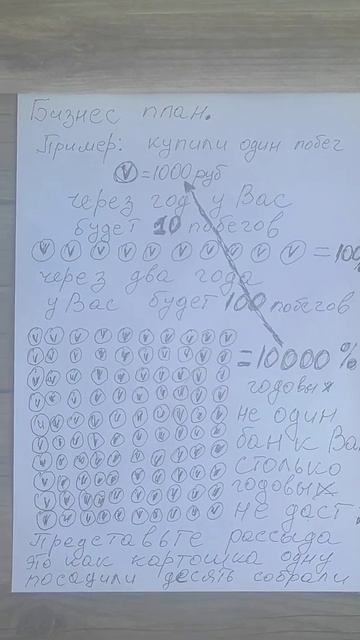 Бизнес план.
Пример: купили один побег
V = 1000 руб
через год у Вас
будет 10 побегов
V V V V V V V V V V = 100
через два года
у Вас будет 100 побегов
= 10000 %
годовых
не один
банк Вам
столько
годовых
не даст
Представьте рассада
это как картошка одну
посадили десять собрали